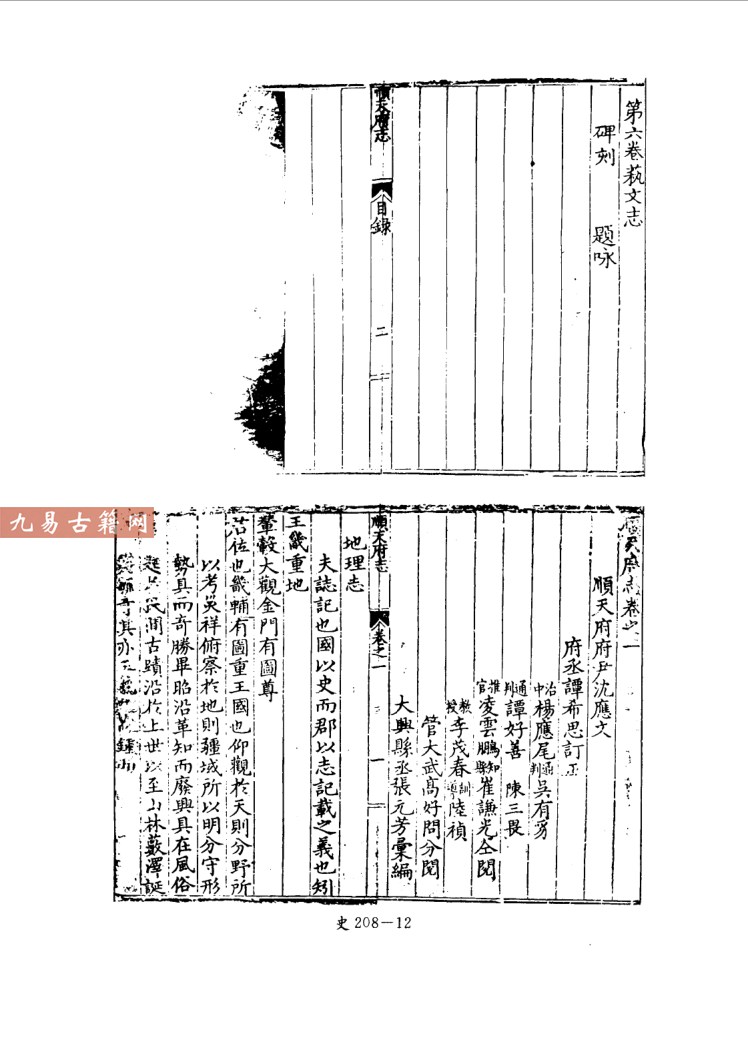 第六卷藝文志
碑刻　題咏
順天府志
目錄
二
順天府志卷之一
順天府府尹沈應文
府丞譚希思訂正
治中楊應尾　通判吳有豸
通判譚好善　陳三畏
推官凌雲鵬　知縣崔謙光仝閱
教授李茂春　訓導陸楨
管大武高好問分閱
大興縣丞張元芳彙編
順天府志
卷之一
一
地理志
夫誌記也國以史而郡以志記載之義也矧
王畿重地
輦轂大觀金門有圖尊
佐也畿輔有圖重王國也仰觀於天則分野所
以考災祥俯察於地則疆域所以明分守形
勢具而奇勝畢昭沿革知而廢興具在風俗
民間古蹟沿於上世以至山林藪澤誕
九易古籍网
史 208－12